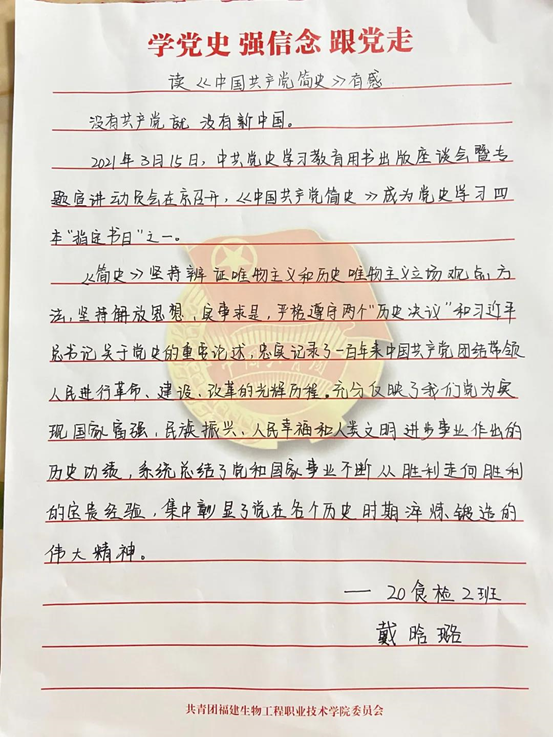 学党史 强信念 跟党走
读《中国共产党简史》有感
没有共产党就没有新中国。
2021年3月15日，中共党史学习教育用书出版座谈会暨专
题宣讲动员会在京召开，《中国共产党简史》成为党史学习四
本“指定书目”之一。
《简史》坚持辨证唯物主义和历史唯物主义立场观点方
法，坚持解放思想，实事求是，严格遵守两个“历史决议”和习近平
总书记关于党史的重要论述，忠实记录了一百年来中国共产党团结带领
人民进行革命、建设、改革的光辉历程。充分反映了我们党为实
现国家富强，民族振兴、人民幸福和人类文明进步事业作出的
历史功绩，系统总结了党和国家事业不断从胜利走向胜利
的宝贵经验，集中彰显了党在各个历史时期淬炼锻造的
伟大精神。
— 20食检2班
戴晗璐
共青团福建生物工程职业技术学院委员会